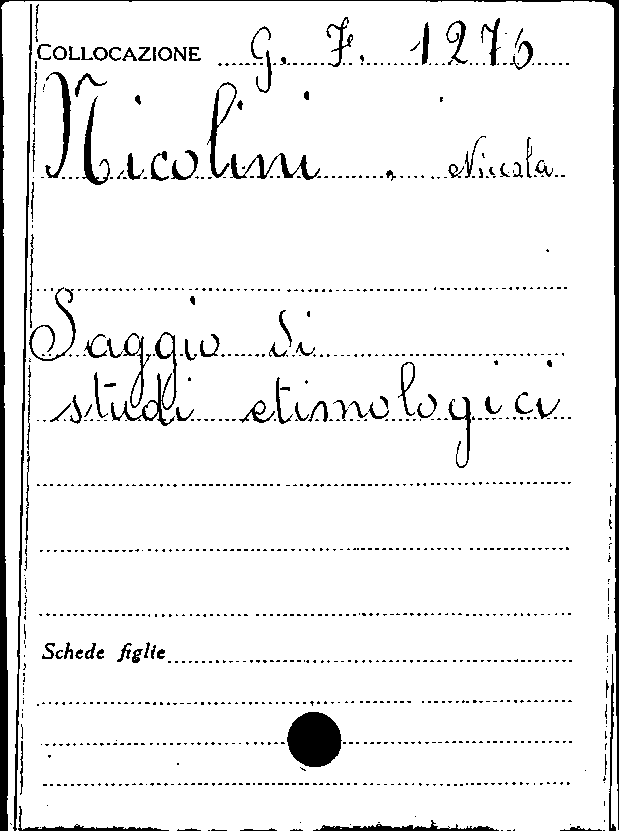 COLLOCAZIONE G. F. 1276
Nicolini . Niccola
Saggio di
studi etimologici
Schede figlie